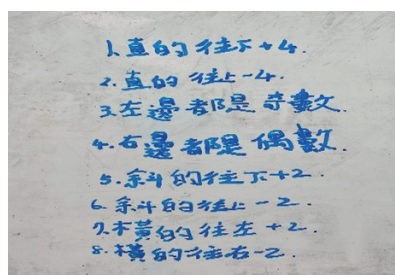 1.直的往下+4.
2.直的往上-4.
3.左邊都是奇數.
4.右邊都是偶數.
5.斜的往下+2.
6.斜的往上-2.
7.橫的往左+2.
8.橫的往右-2.